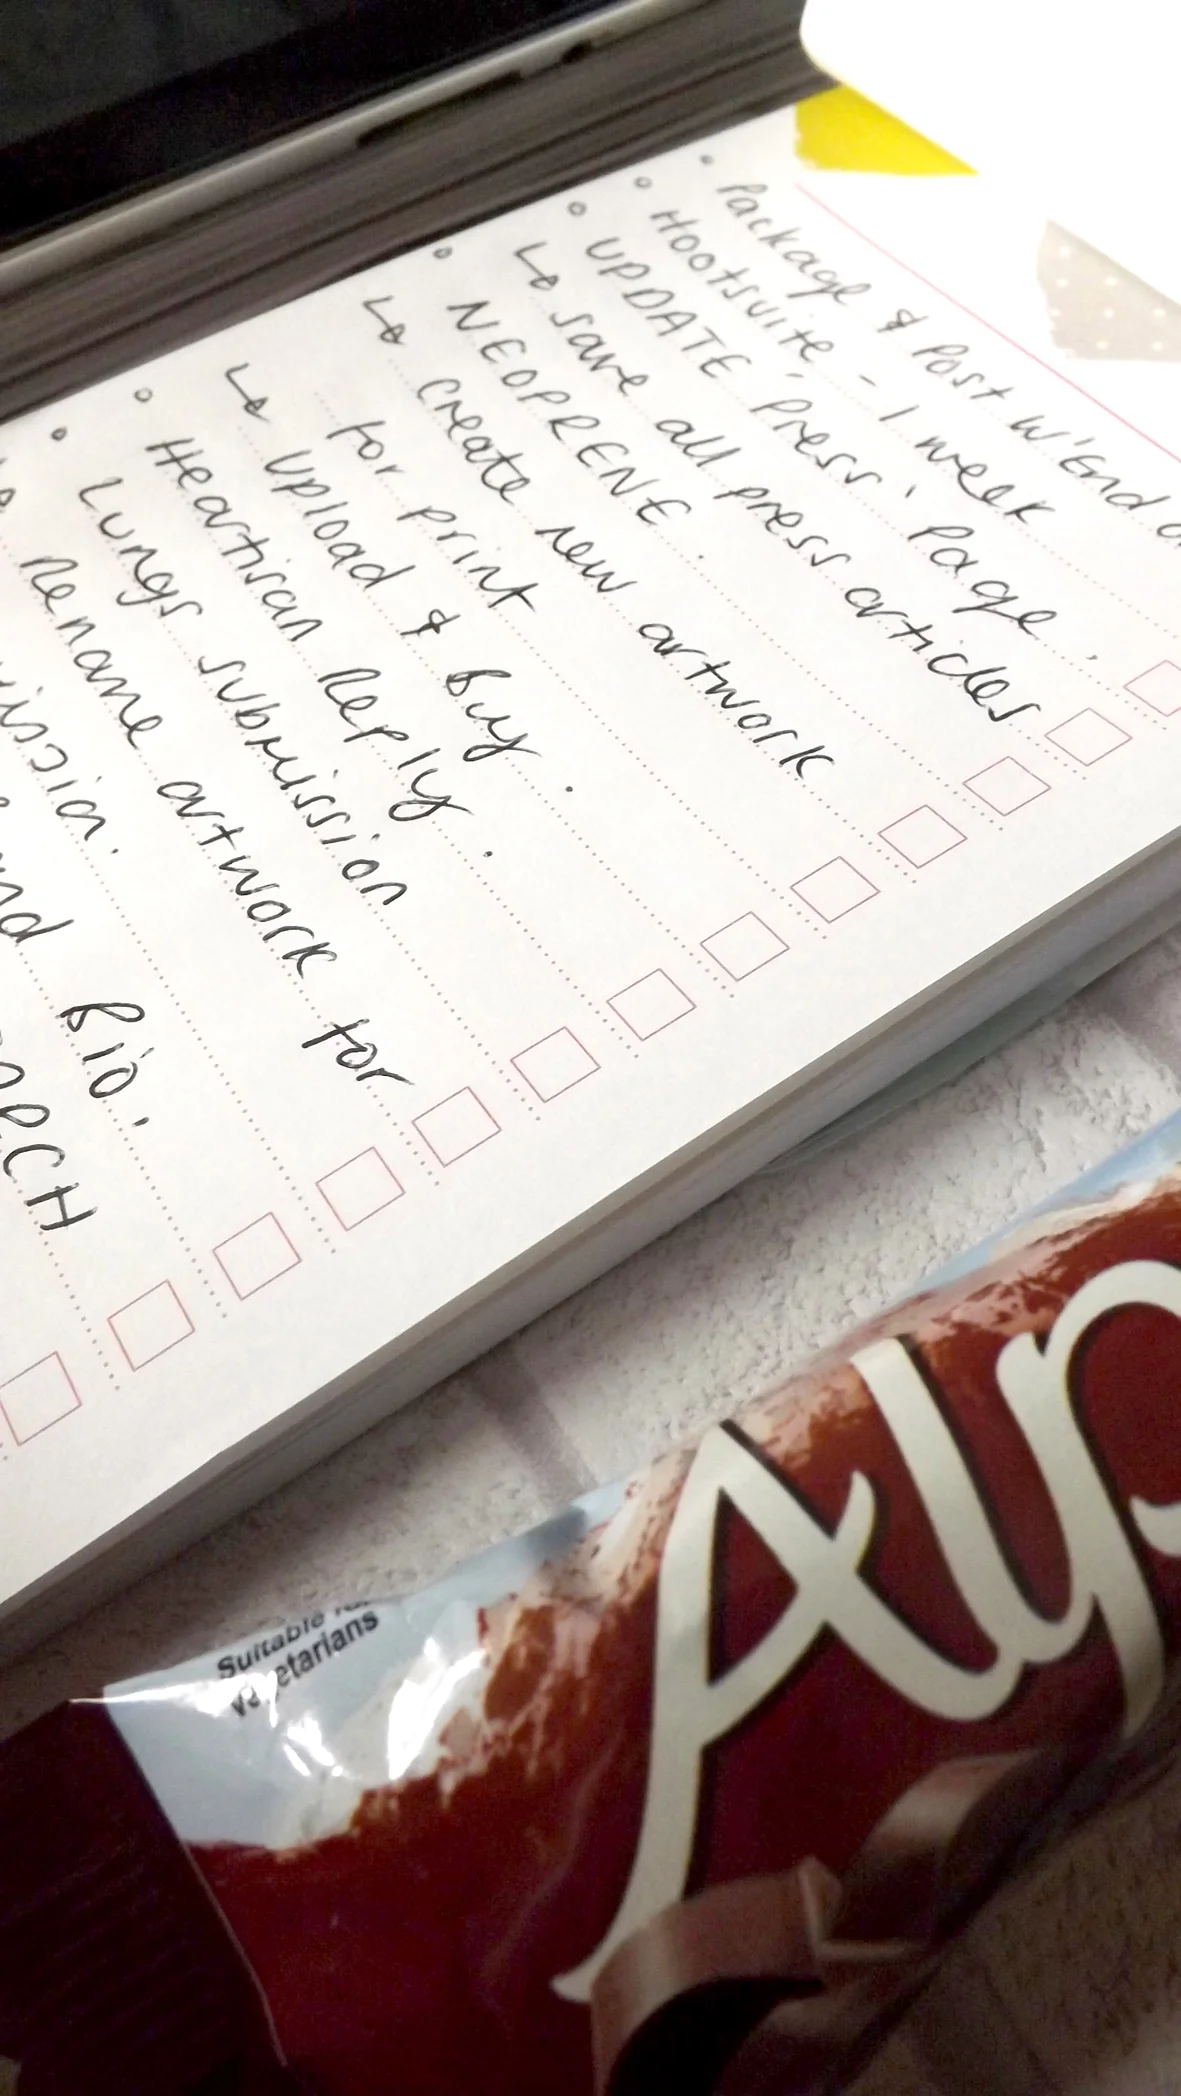 Package & Post W'End
Hootsuite - 1 week
UPDATE 'Press' Page.
↳ save all press articles
NEOPRENE.
↳ create new artwork
for print
↳ upload & Buy.
Heartisan Reply.
Lungs submission
Rename artwork for
Bio.
Suitable for
vegetarians